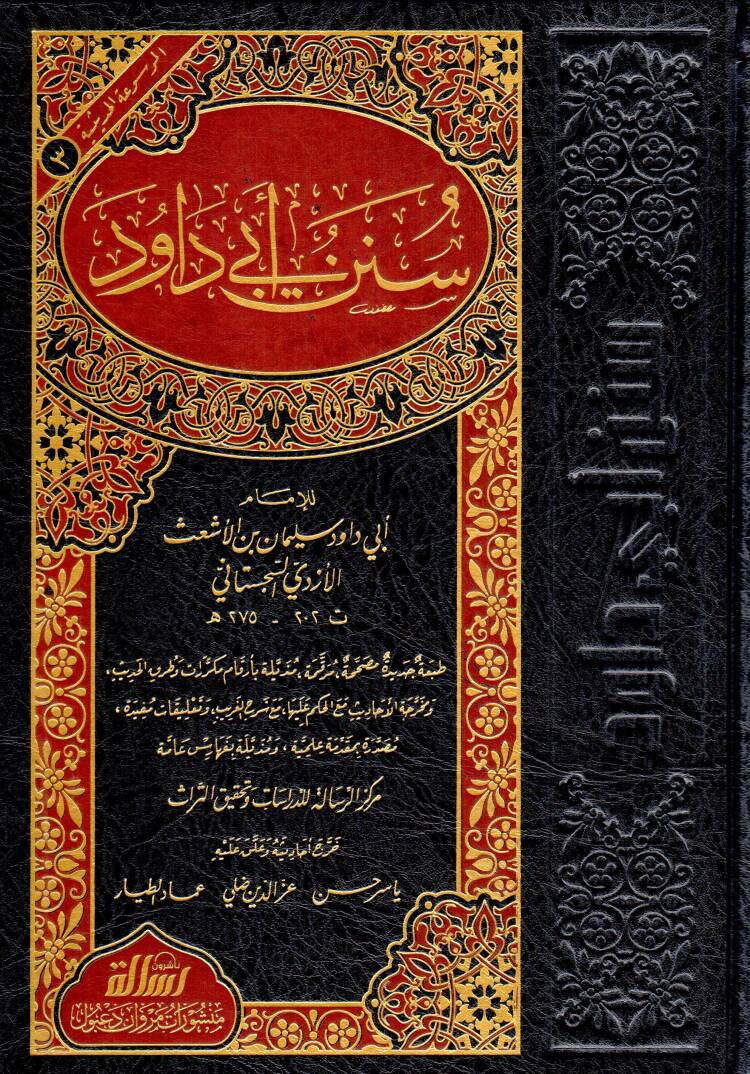 الموسوعة الحديثية
٣
سُنَنُ أَبِي دَاوُدَ
للإمام
أبي داود سليمان بن الأشعث
الأزدي السجستاني
ت ٢٠٢ - ٢٧٥ هـ
طبعة جديدة مصححة، مرقمة، مذيلة بأرقام مكررات وطرق الحديث،
ومخرجة الأحاديث مع الحكم عليها، مع شرح الغريب، وتعليقات مفيدة،
مصدرة بمقدمة علمية، ومذيلة بفهارس عامة
مركز الرسالة للدراسات وتحقيق التراث
خرج أحاديثه وعلق عليه
ياسر حسن عز الدين ضلي عماد الطيار
رسالة ناشرون
منشورات مروان دعبول
سنن أبي داود